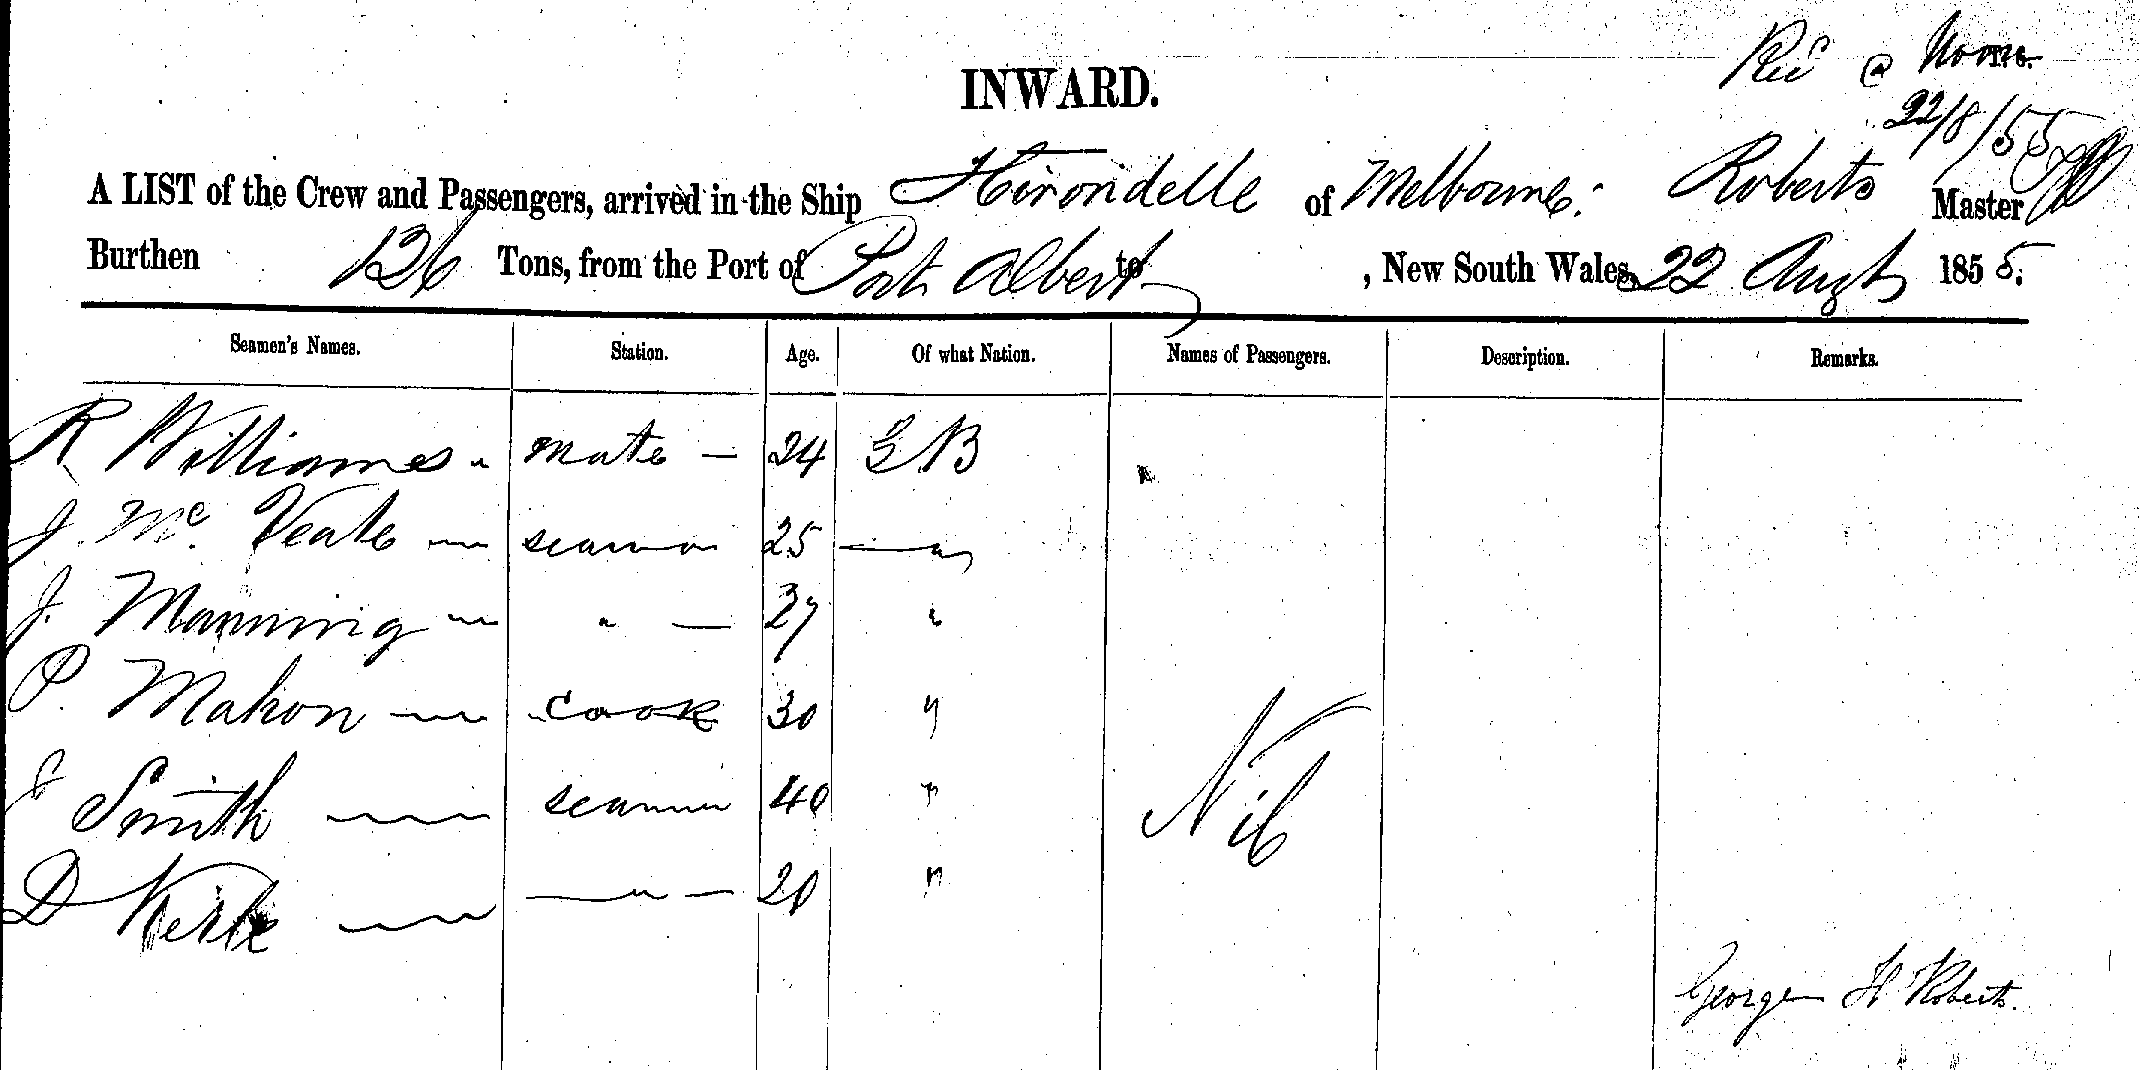 Recd @ Noon
22/8/55
INWARD.
A LIST of the Crew and Passengers, arrived in the Ship Hirondelle of Melbourne: Roberts Master
Burthen 126 Tons, from the Port of Port Albert to , New South Wales, 22 Augt 1855.
Seamen's Names. Station. Age. Of what Nation. Names of Passengers. Description. Remarks.
R Williams " mate — 24 G B
J. Mc. Veate — seaman 25 — "
J. Manning — " — 27 "
P. Mahon — cook 30 "
J Smith — seaman 40 " Nil
D — " — 20 "
George H Roberts.